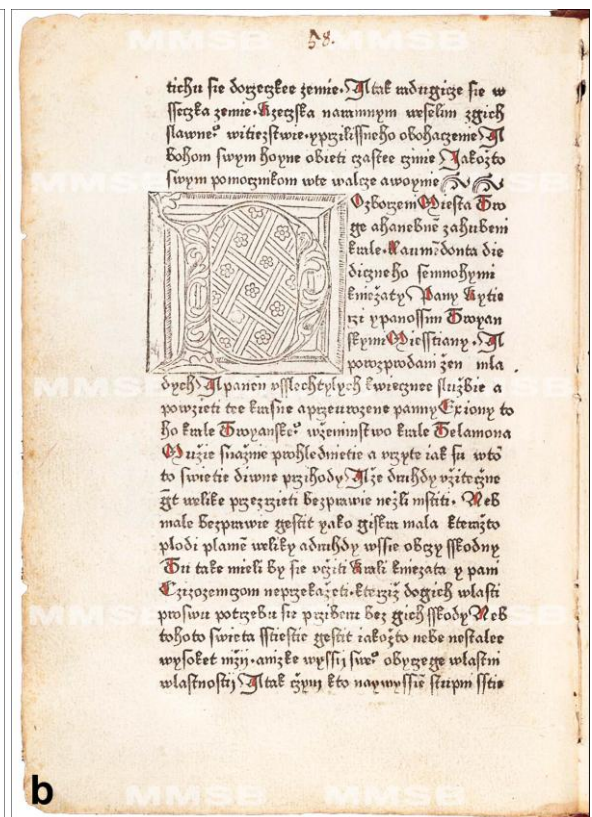 58.
tichu sie dorzeczkee zemie. A tak radugicze sie w
sseczka zemie. Rzeczska naramnym weselim zgich
slawne° witiezstwie. yprzilissneho obohaczenie A
bohom swym hoyne obieti czastee czinie Jakožto
swym pomocznikom wte walcze awoynie
Ozborzeni Miesta Tro
ge ahanebnē zahubeni
krale. Laumēdonta die
diczneho semnohymi
kniežaty Pany Rytie
rzi ypanossmi Troyan
skymi Miesstiany. A
porozprodani žen mla
dych A panen vsslechtylych kwiecznee službie a
powzieti tee krasne aprzeurozene panny Exiony to
ho krale Troyanske° wženinstwo krale Telamona
Mužie snažnie prohledmietie a vrzyte iak su wto
to swietie diwne przihody Až e druhdy vžiteczne
gt welike przezrzieti bezprawie nežli mstiti. Neb
male bezprawie gestit yako giskra mala kteražto
plodi plamē weliky adruhdy wssie obczy sskodny
Tu take mieli by sie vcziti Krali kniezata y pani
Czizozemczom neprzekažeti. kterziž dogich wlasti
proswu potrzebu sie przibern bez gich sskody Neb
tohoto swieta sstiestie gestit iakožto nebe nestalee
wysoket nižij. anizke wyssij swe° obyczege wlastni
wlastnostij A tak czym kto naywyssie stupni sstie
b